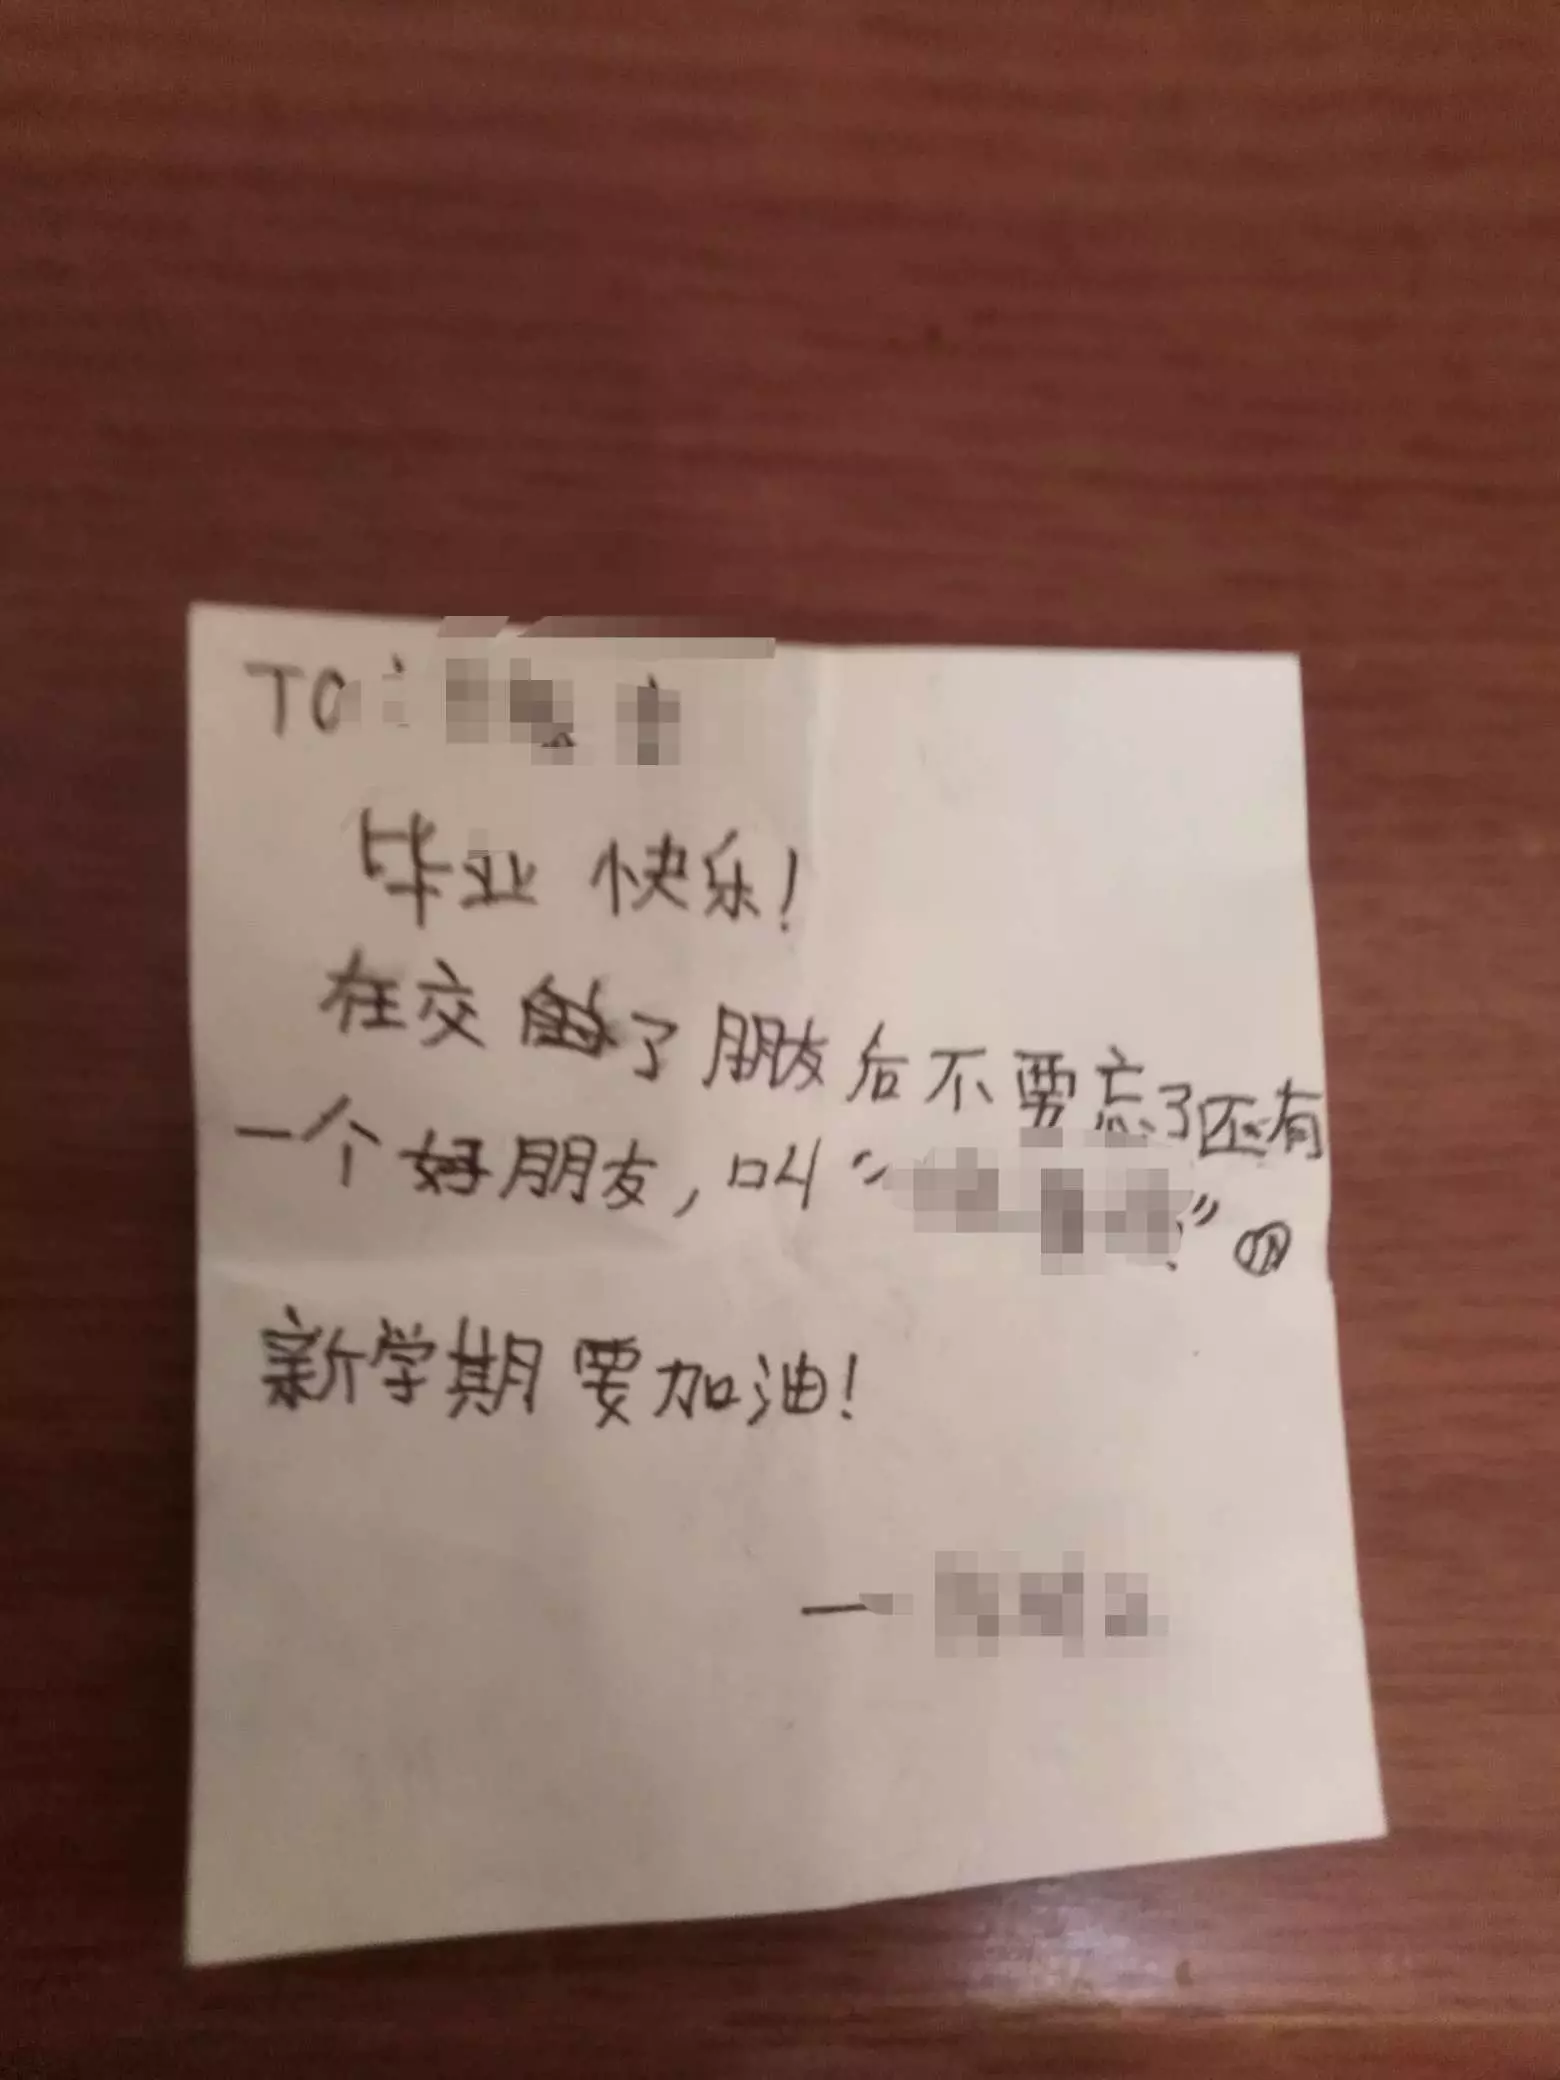 TO:
毕业快乐!
在交了朋友后不要忘了还有
一个好朋友,叫“”
新学期要加油!
—